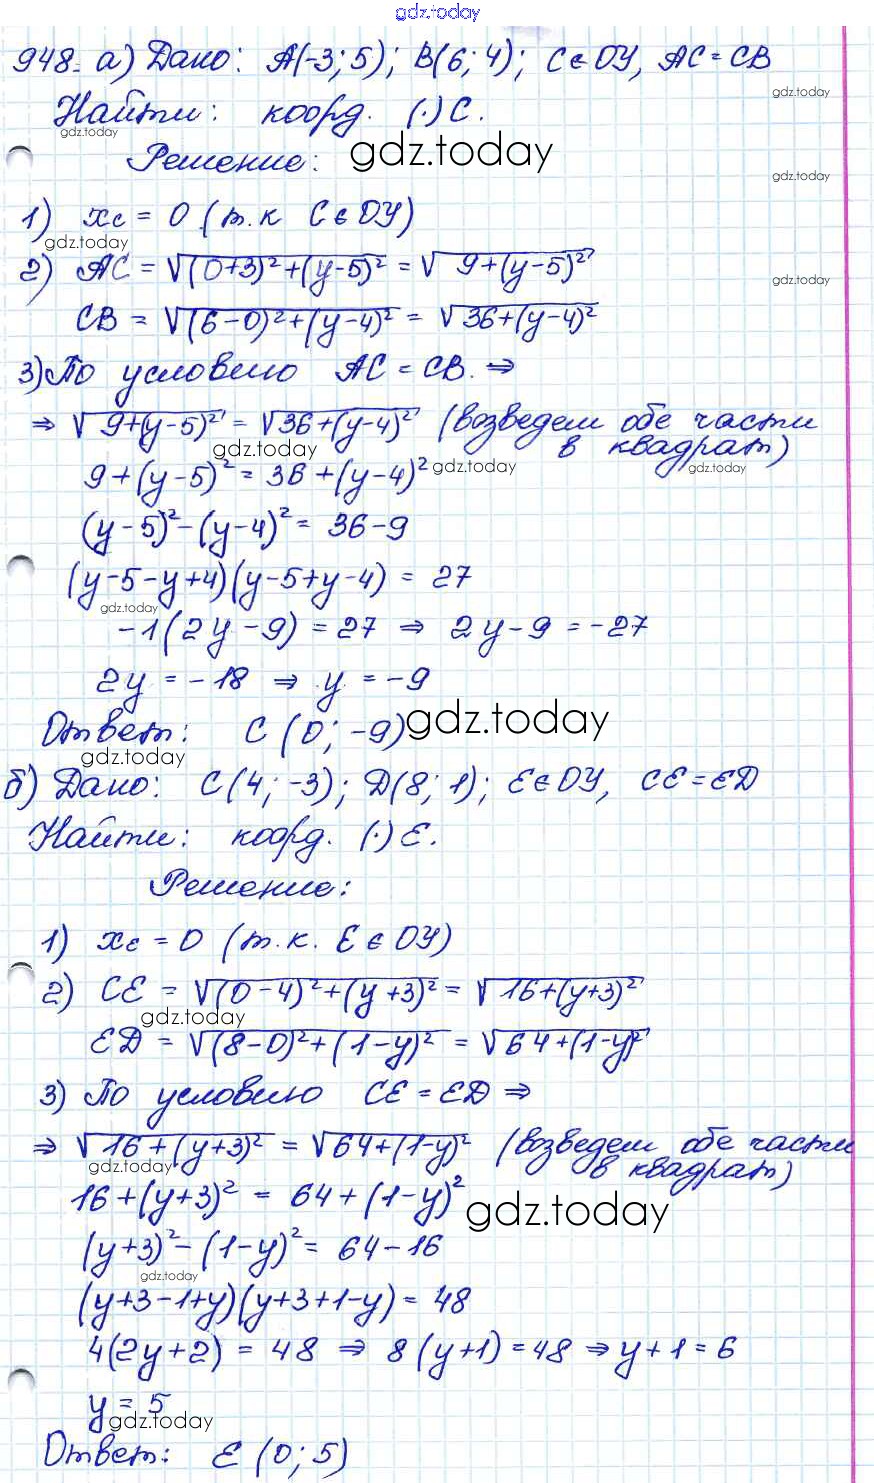 gdz.today
948. а) Дано: A(-3; 5); B(6; 4); C∈OY, AC=CB
gdz.today
Найти: коорд. (·) C.
gdz.today
Решение: gdz.today
gdz.today
1) x_C = 0 (т.к C∈OY)
gdz.today
2) AC = √((0+3)²+(y-5)²) = √(9+(y-5)²)
gdz.today
CB = √((6-0)²+(y-4)²) = √(36+(y-4)²)
3) По условию AC = CB. ⇒
⇒ √(9+(y-5)²) = √(36+(y-4)²) (возведем обе части
в квадрат)
gdz.today
9+(y-5)² = 36+(y-4)² gdz.today gdz.today
(y-5)²-(y-4)² = 36-9
(y-5-y+4)(y-5+y-4) = 27
gdz.today
-1(2y-9) = 27 ⇒ 2y-9 = -27
2y = -18 ⇒ y = -9
Ответ: C (0; -9) gdz.today
gdz.today
б) Дано: C(4; -3); D(8; 1); E∈OY, CE=ED
Найти: коорд. (·) E.
Решение:
1) x_E = 0 (т.к. E∈OY)
2) CE = √((0-4)²+(y+3)²) = √(16+(y+3)²)
gdz.today
ED = √((8-0)²+(1-y)²) = √(64+(1-y)²)
3) По условию CE = ED ⇒
⇒ √(16+(y+3)²) = √(64+(1-y)²) (возведем обе части
в квадрат)
gdz.today
16+(y+3)² = 64+(1-y)²
gdz.today
(y+3)²-(1-y)² = 64-16
gdz.today
(y+3-1+y)(y+3+1-y) = 48
4(2y+2) = 48 ⇒ 8(y+1) = 48 ⇒ y+1 = 6
y = 5
gdz.today
Ответ: E (0; 5)